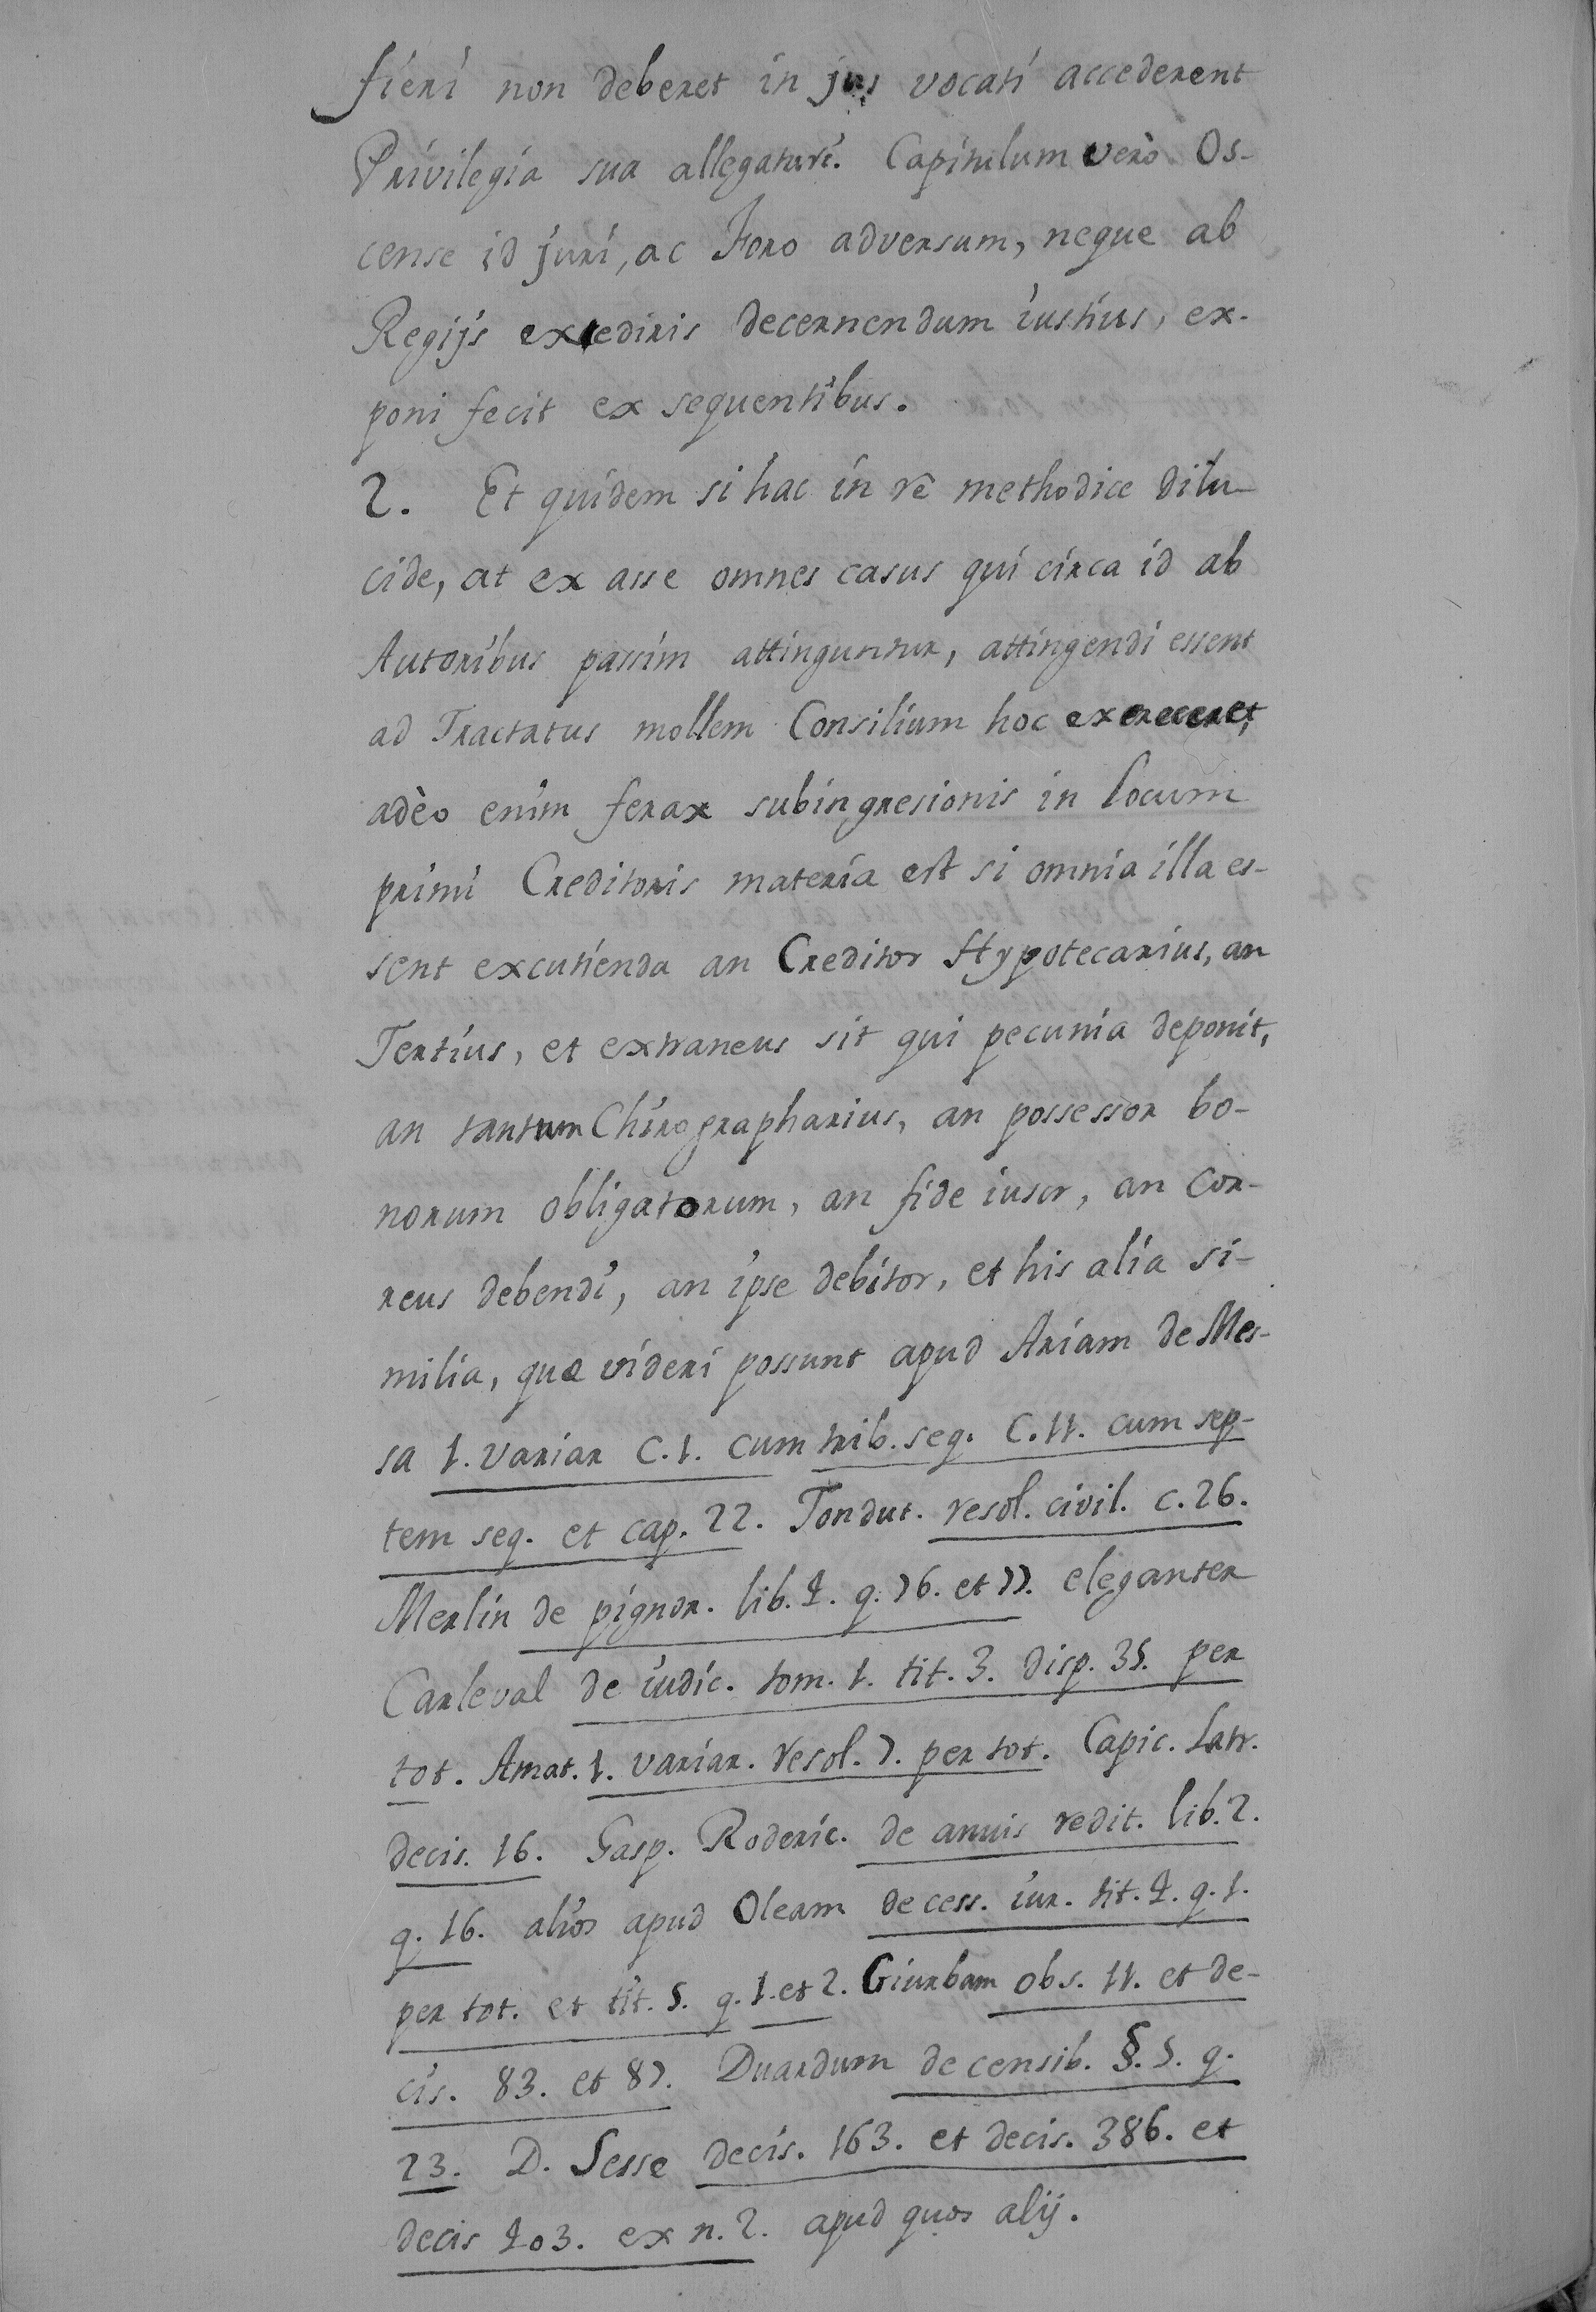 fieri non deberet in jus vocati accederent
Privilegia sua allegaturi. Capitulum verò Os-
cense id juri, ac Foro adversum, neque ab
Regijs exediris decernendum iustius, ex-
poni fecit ex sequentibus.
2. Et quidem si hac in rê methodice dilu-
cide, at ex asse omnes casus qui circa id ab
Autoribus passim attinguntur, attingendi essent
ad Tractatus mollem Consilium hoc excreceret,
adèo enim ferax subingresionis in locum
primi Creditoris materia est si omnia illa es-
sent excutienda an Creditor Hypotecarius, an
Tertius, et extraneus sit qui pecunia deponit,
an tantum Chirographarius, an possessor bo-
norum obligatorum, an fide iusor, an Cor-
reus debendi, an ipse debitor, et his alia si-
milia, quæ videri possunt apud Ariam de Mes-
sa 1. variar C.1. cum trib. seq. C.11. cum sep-
tem seq. et cap. 22. Tondut. resol. civil. c.26.
Merlin de pignor. lib. 4. q. 76. et 77. eleganter
Carleval de iudic. tom. 1. tit. 3. disp. 35. per
tot. Amat. 1. variar. resol. 7. per tot. Capic. Latr.
decis. 16. Gasp. Roderic. de annuis redit. lib. 2.
q. 16. alios apud Oleam de cess. iur. tit. 4. q. 1.
per tot. et tit. 5. q. 1. et 2. Giurbam obs. 11. et de-
cis. 83. et 87. Duardum de censib. §. 5. q.
23. D. Sesse decis. 163. et decis. 386. et
decis 403. ex n. 2. apud quos alij.